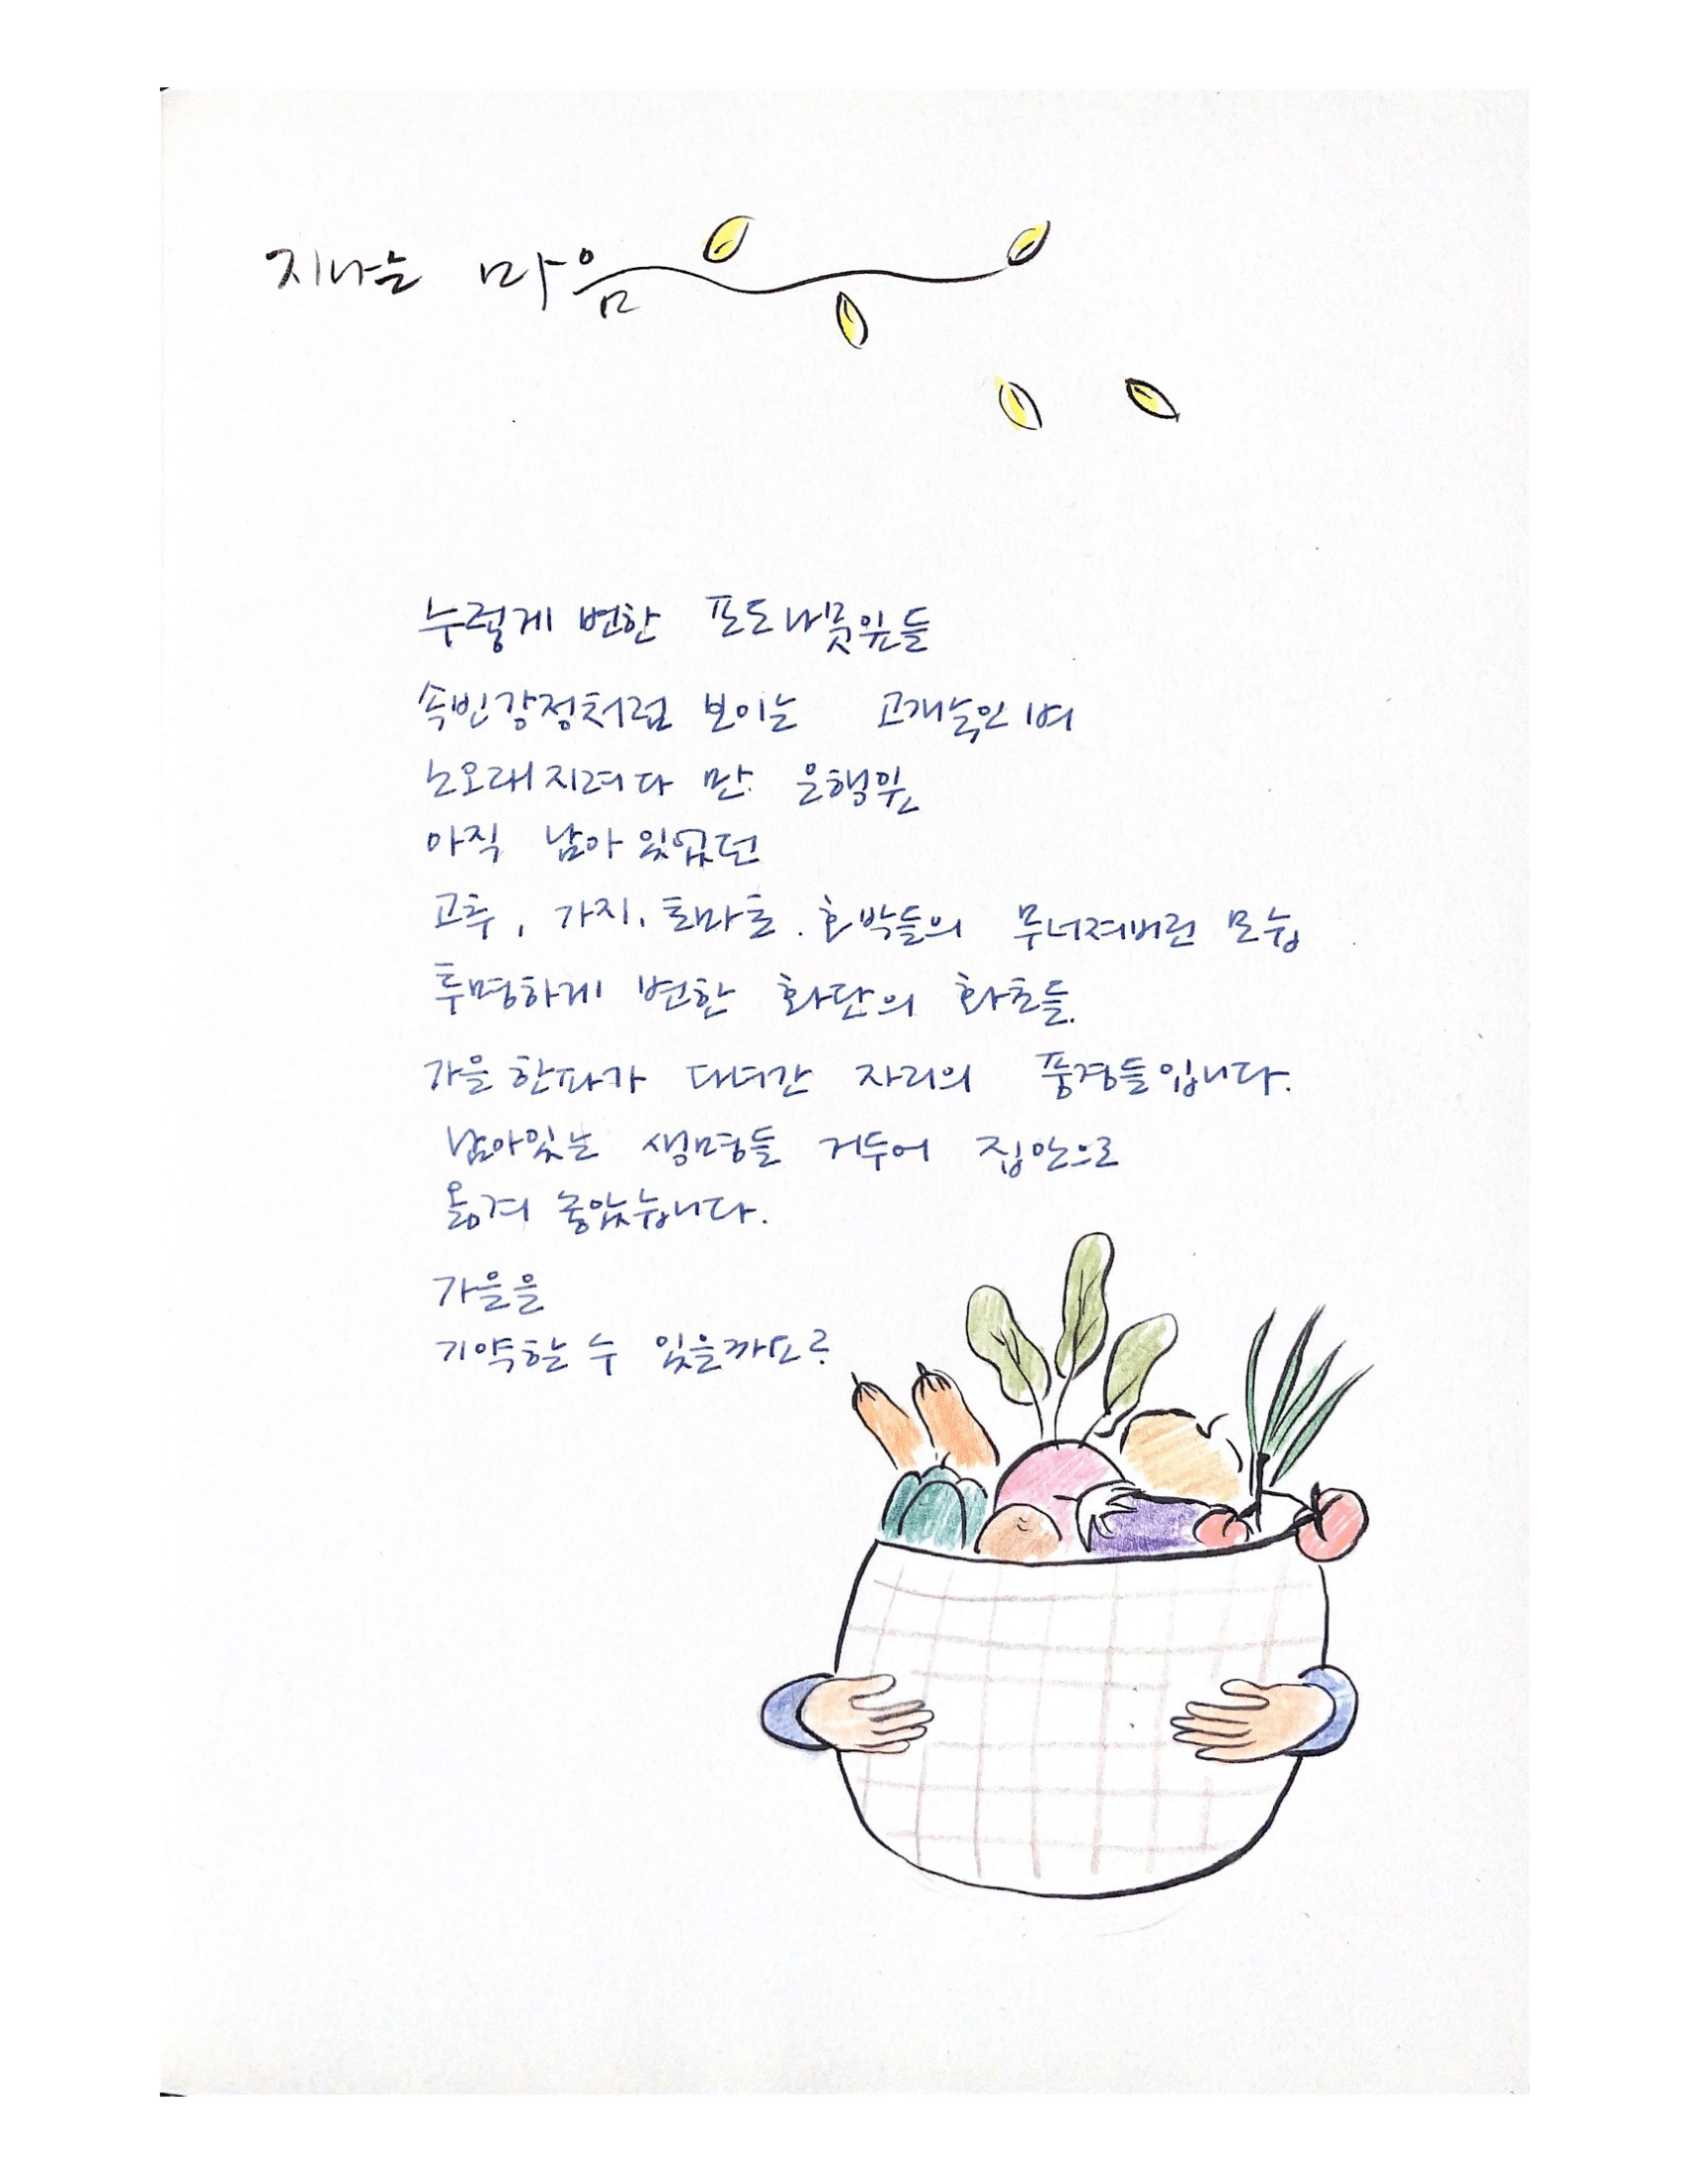 지나는 마음
누렇게 변한 포도나뭇잎들
속빈강정처럼 보이는 고개숙인 벼
노오래지려다 만 은행잎
아직 남아 있었던
고추, 가지, 토마토. 호박들의 무너져버린 모습
투명하게 변한 화단의 화초들.
가을 한파가 다녀간 자리의 풍경들입니다.
남아있는 생명들 거두어 집안으로
옮겨 놓았습니다.
가을을
기약할 수 있을까요?